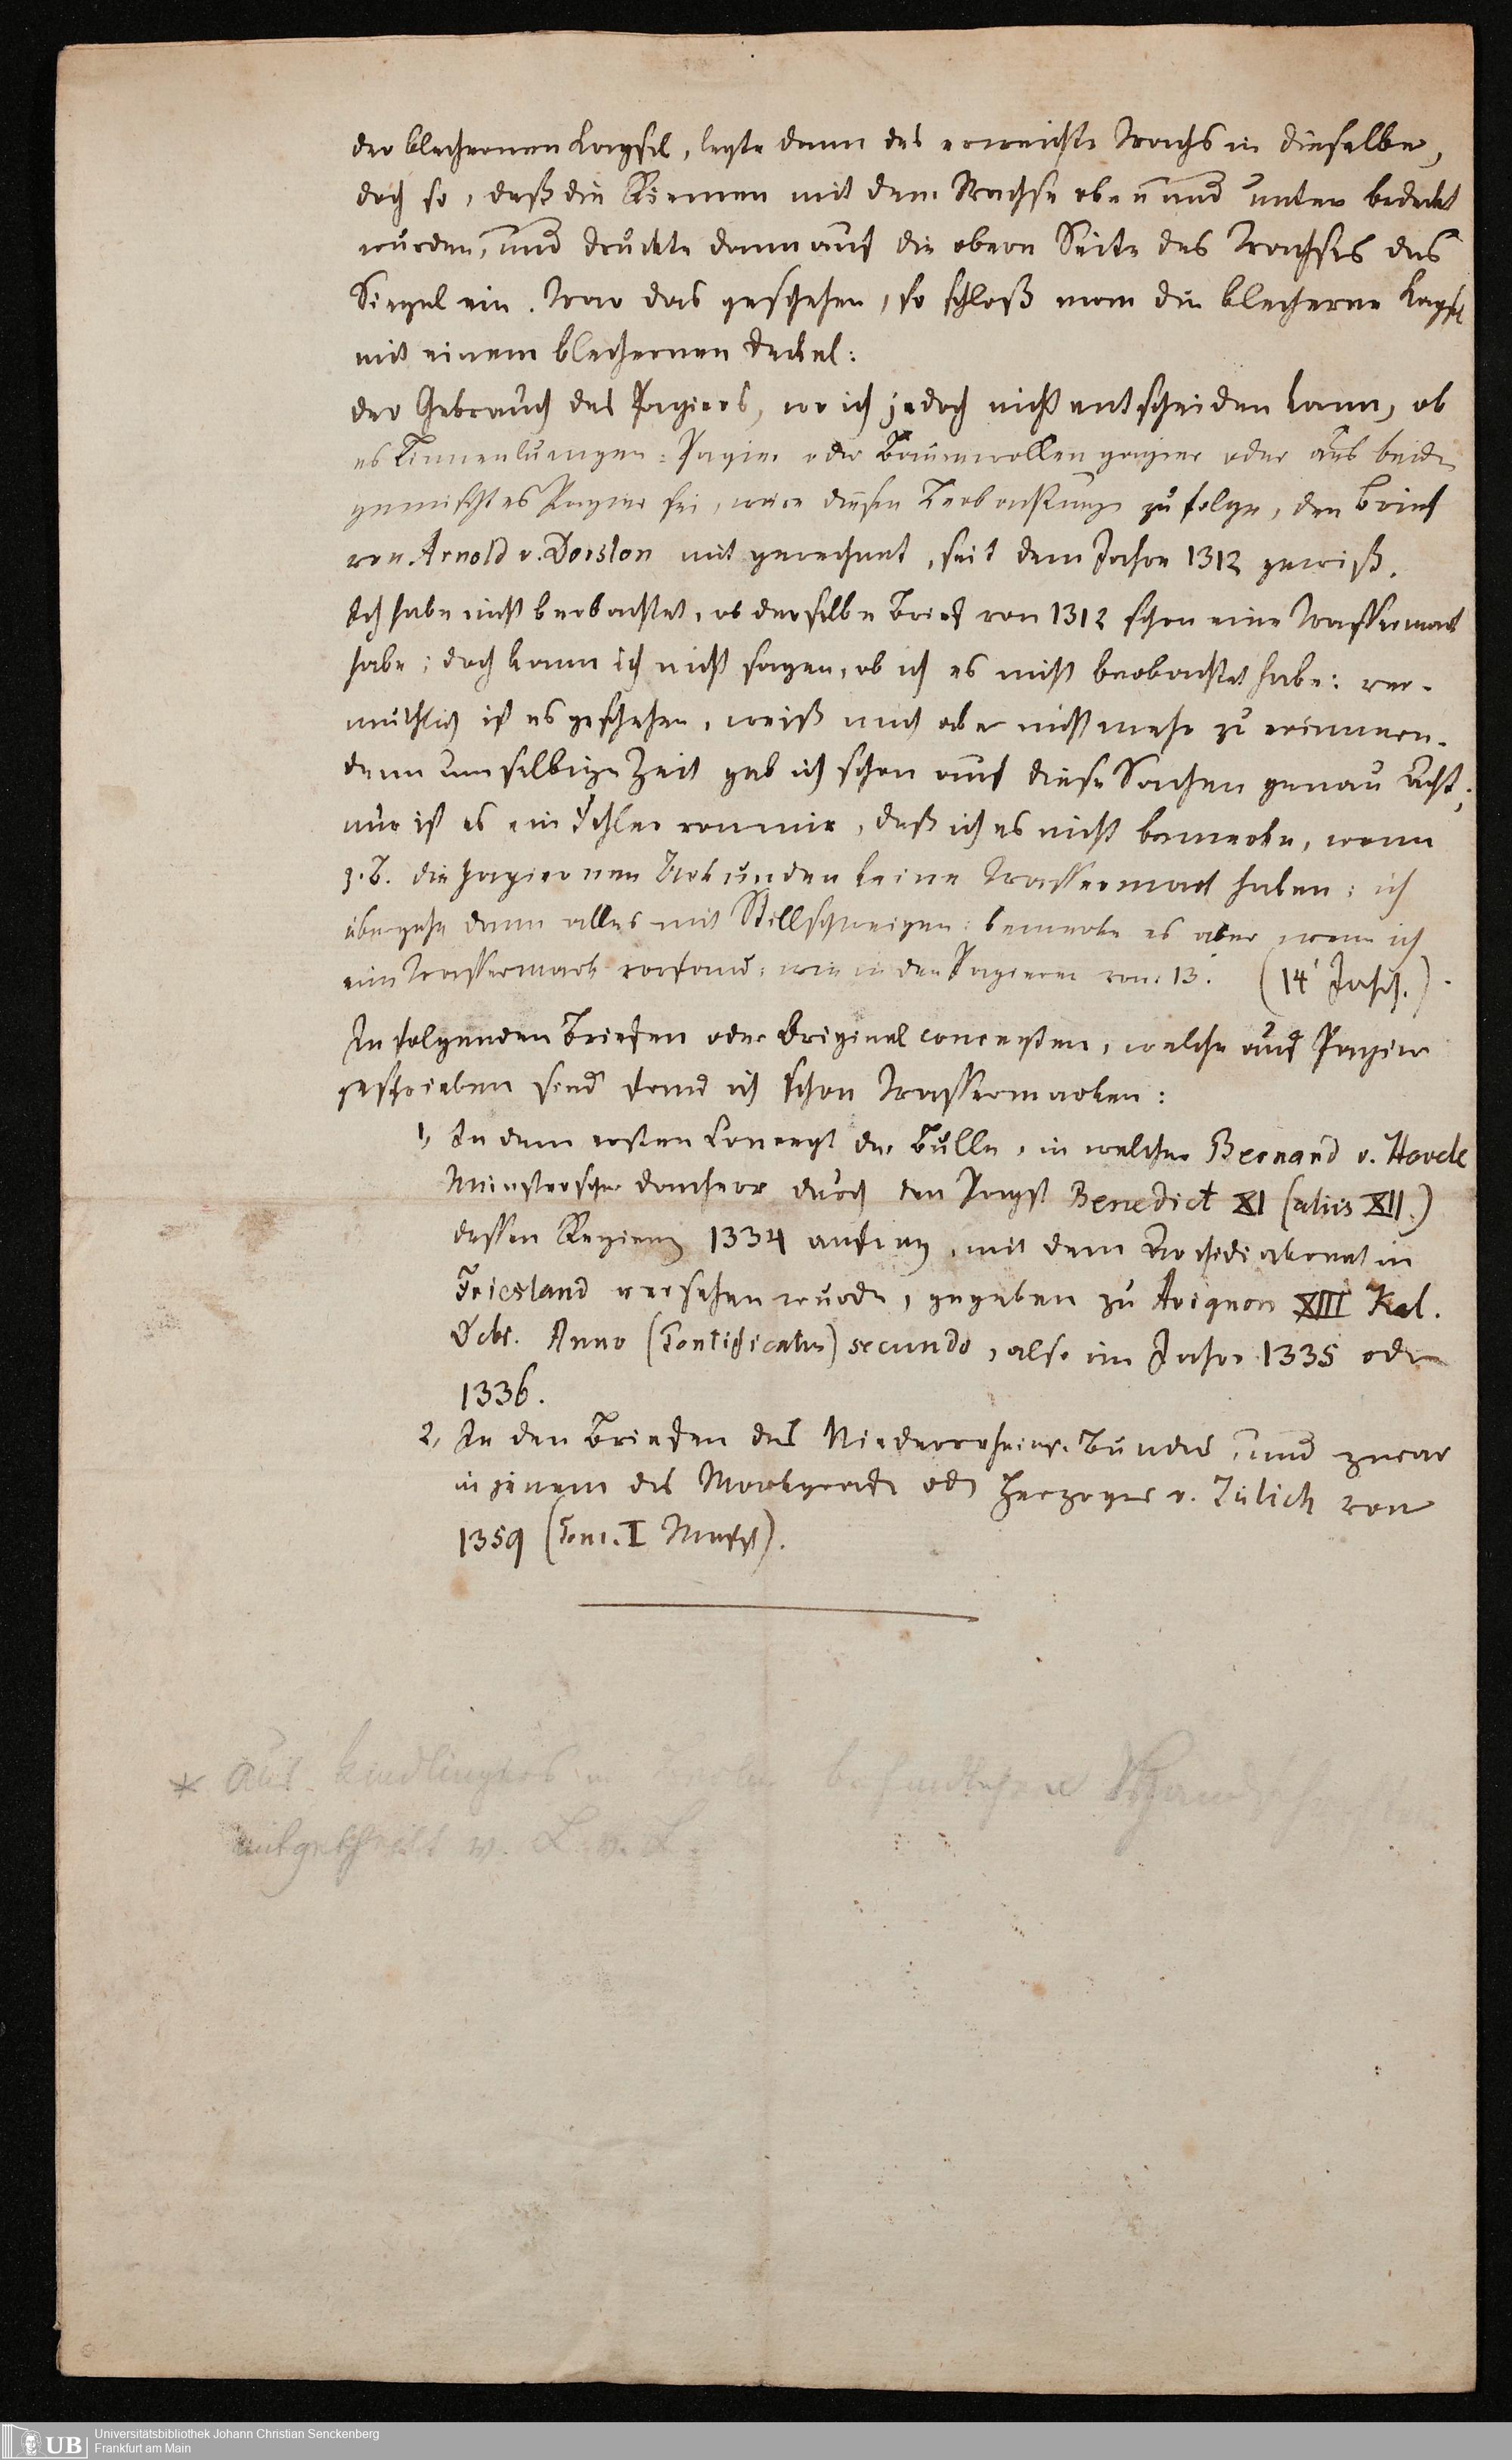 der blechernen Kapsel, legte dann das erweichte Wachs in dieselbe,
doch so, daß die Riemen mit dem Wachse oben und unter bedeckt
wurden, und druckte dann auf die obern Seite des Wachses das
Siegel ein. War das geschehen, so schloß man die blecherne Kapsel
mit einem blechernen Deckel:
der Gebrauch des Papiers, wo ich jedoch nicht entscheiden kann, ob
es Linnenlumpen-Papier oder Baumwollenpapier oder aus beiden
gemischtes Papier sei, wäre diesen Beobachtungen zu folge, den Brief
von Arnold v. Dorsten mit gerechnet, seit dem Jahre 1312 gewiß.
Ich habe nicht beobachtet, ob derselbe Brief von 1312 schon eine Wassermark
habe; doch kann ich nicht sagen, ob ich es nicht beobachtet habe: ver-
muthlich ist es geschehen, weiß mich aber nicht mehr zu erinnern.
denn um selbige Zeit gab ich schon auf diese Sachen genau Acht;
nur ist es ein Fehler von mir, daß ich es nicht bemerke, wenn
z. B. die papiernen Urkunden keine Wassermark haben: ich
übergehe dann alles mit Stillschweigen: bemerke es aber wenn ich
eine Wassermark vorfand: wie in den Papieren von 13. (14 Jahrh.).
In folgenden Briefen oder Originalconcepten, welche auf Papier
geschrieben sind fand ich schon Wassermarken:
1, In dem ersten Concept der Bulle, in welcher Bernard v. Hovele
Münsterscher Domherr durch den Papst Benedict XI (aliis XII.)
dessen Regierung 1334 anfing, mit dem Archidiakonat in
Friesland versehen wurde, gegeben zu Avignon XIII Kal.
Octbr. Anno (Pontificatus) secundo, also im Jahre 1335 oder
1336.
2, In den Briefen des Niederrheins. Bundes, und zwar
in jenem des Markgrafen oder Herzoges v. Jülich von
1359 (Tom. I Mspt).
* aus Kindlingers in befindlichen Handschriften
mitgetheilt v. L. v. L.
Universitätsbibliothek Johann Christian Senckenberg
Frankfurt am Main
UB